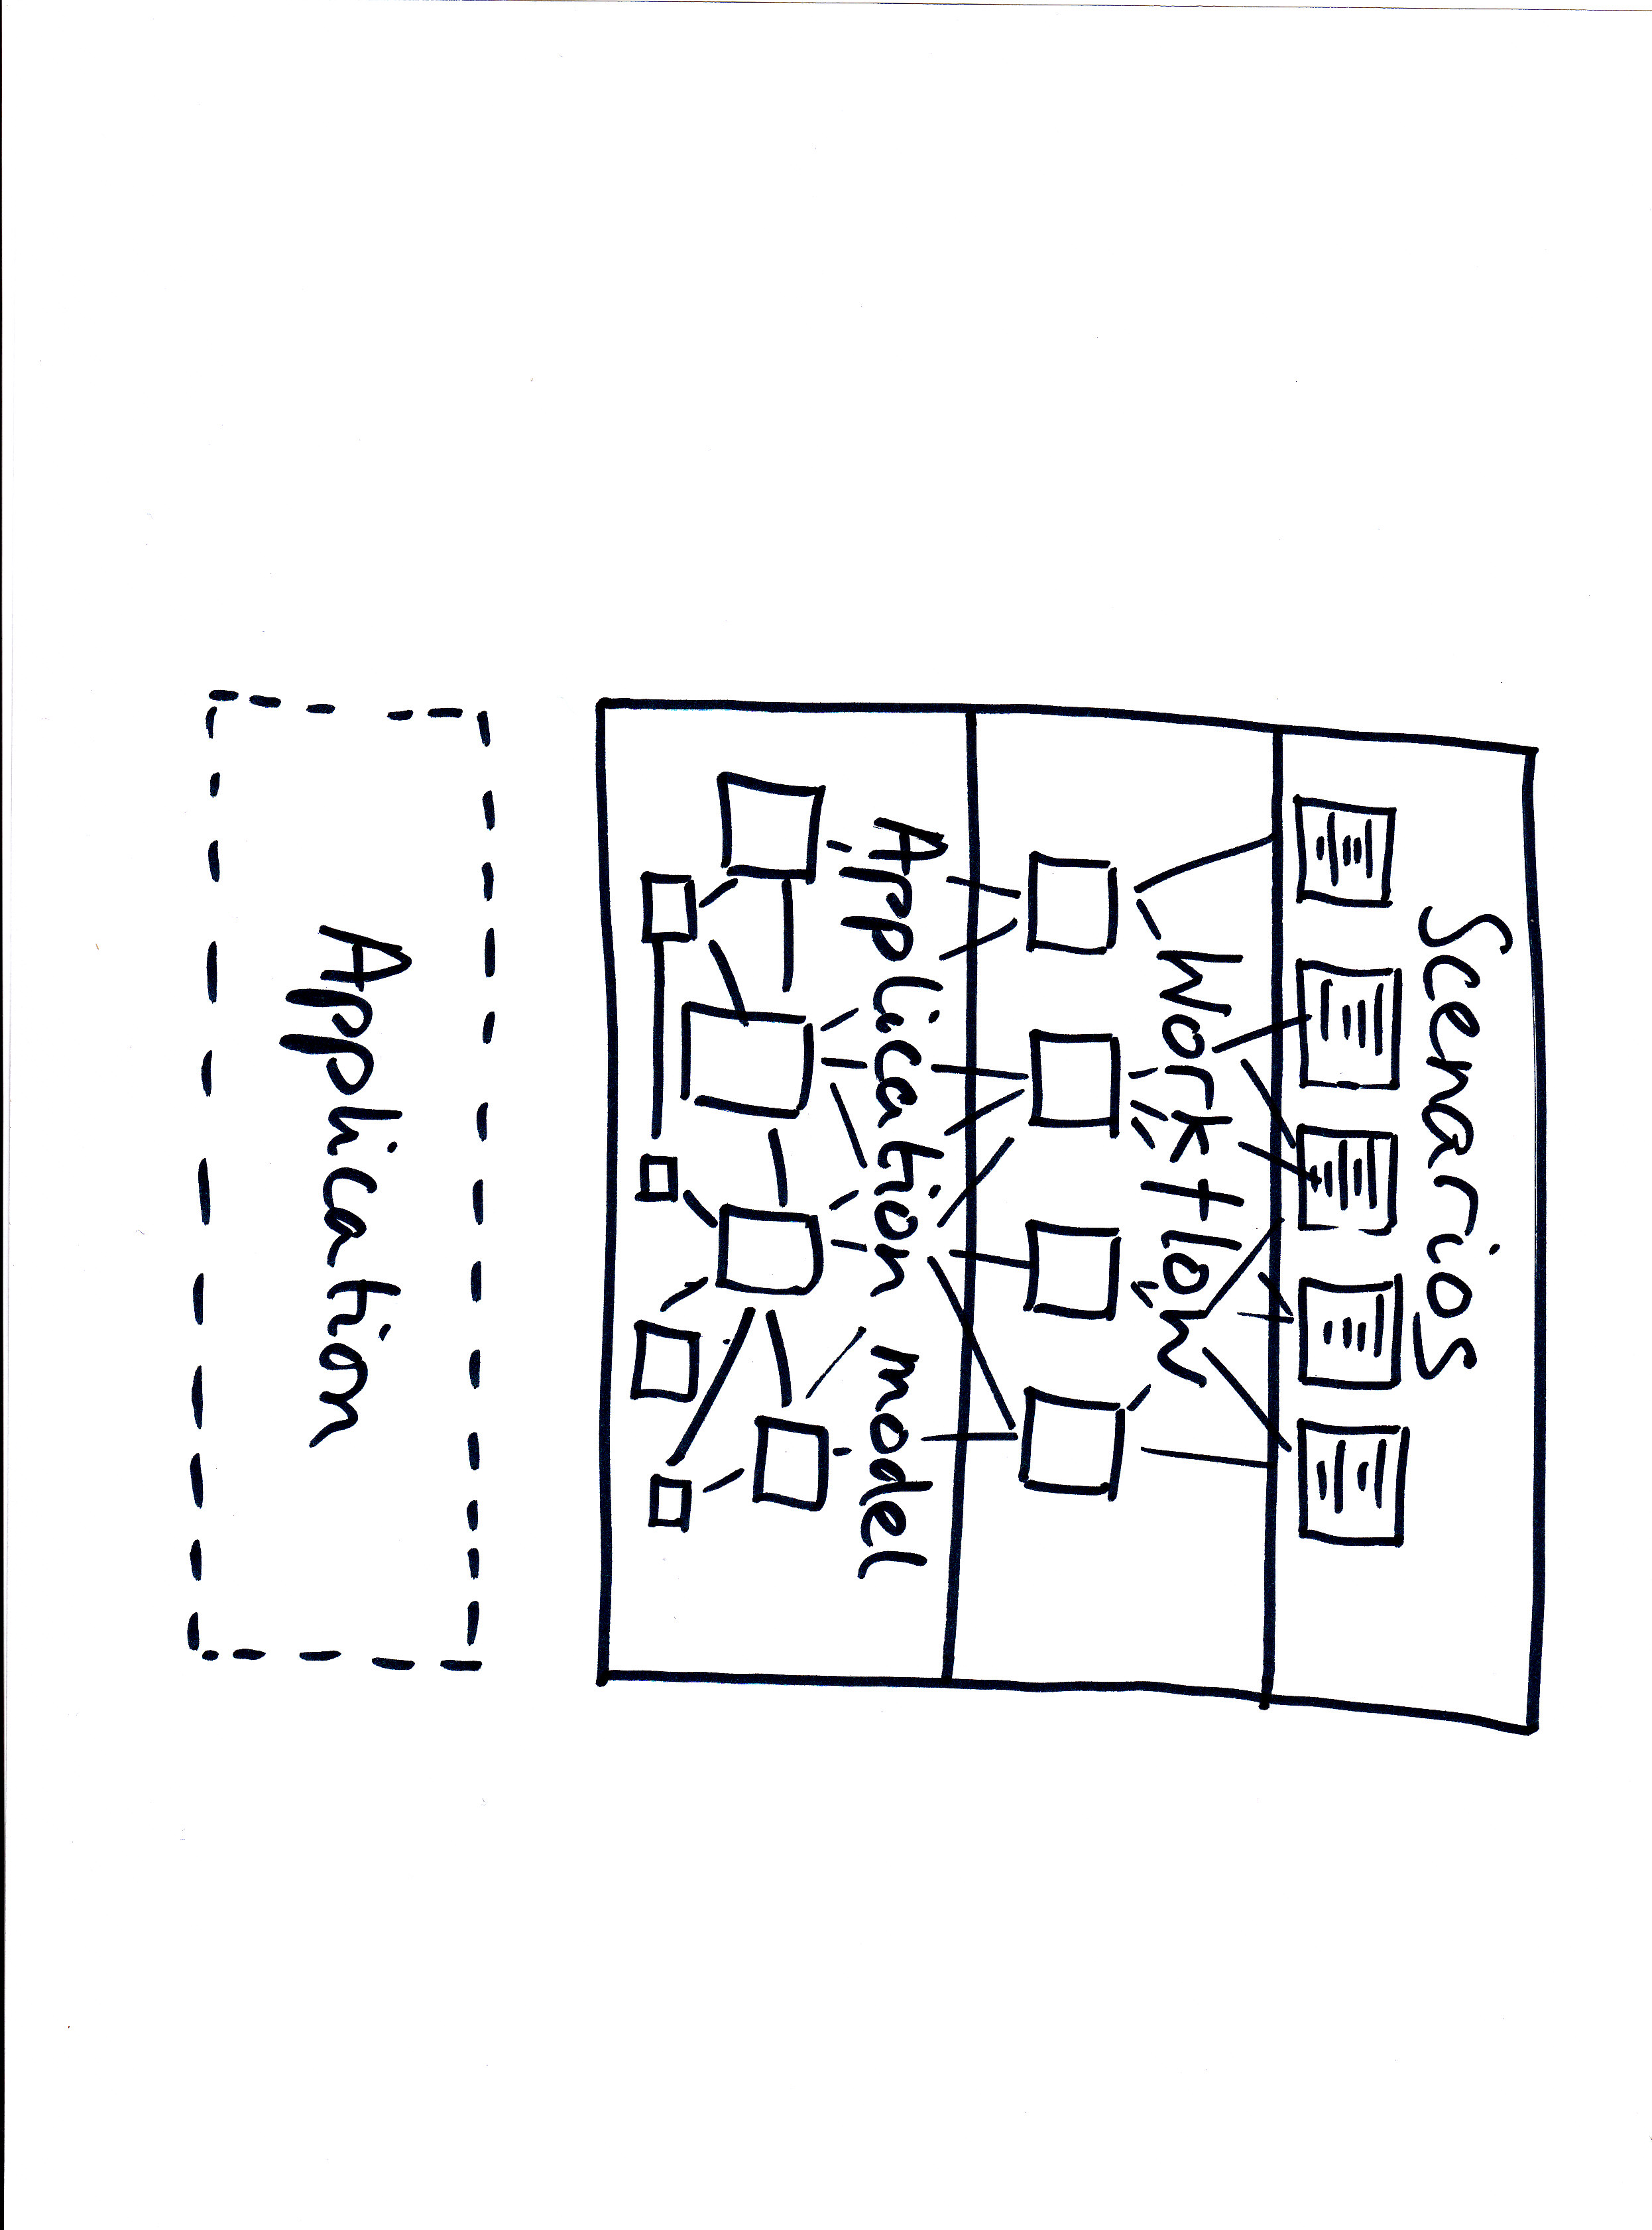 Scenarios
Workflow
Application model
Application